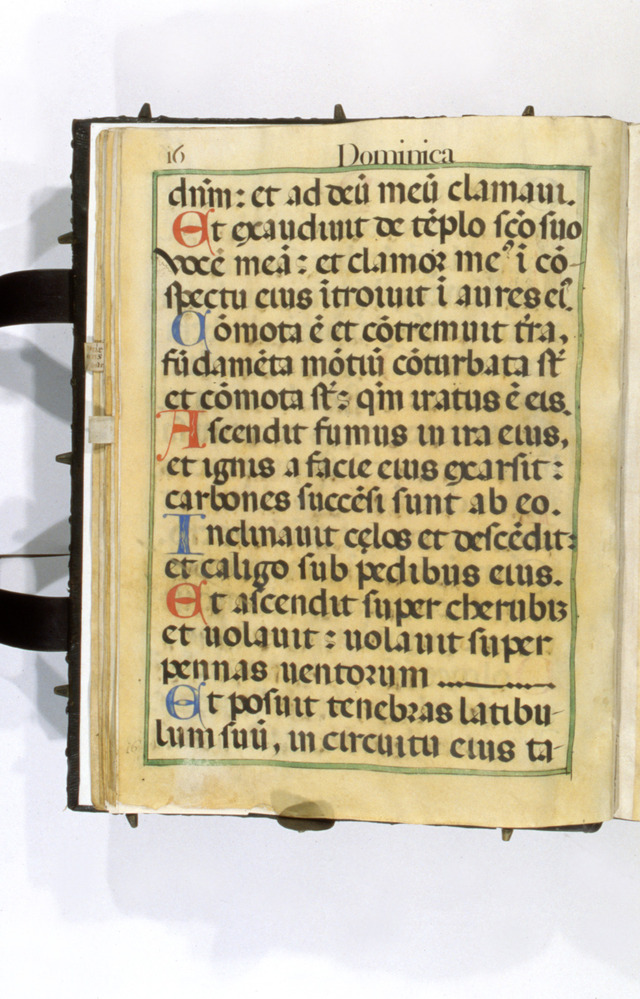 16 Dominica
dñm: et ad deũ meũ clamaui.
Et exaudiuit de tẽplo sc̃o suo
vocẽ meã: et clamor meꝰ ĩ cõ-
spectu eius ĩtroiuit ĩ aures eiꝰ.
Cõmota ẽ et cõtremuit tr̃a,
fũdamẽta mõtiũ cõturbata st̃
et cõmota st̃: qm̃ iratus ẽ eis.
Ascendit fumus in ira eius,
et ignis a facie eius exarsit:
carbones succẽsi sunt ab eo.
Inclinauit cęlos et descẽdit:
et caligo sub pedibus eius.
Et ascendit super cherubiꝫ
et uolauit: uolauit super
pennas uentorum
Et posuit tenebras latibu-
lum suũ, in circuitu eius ta-